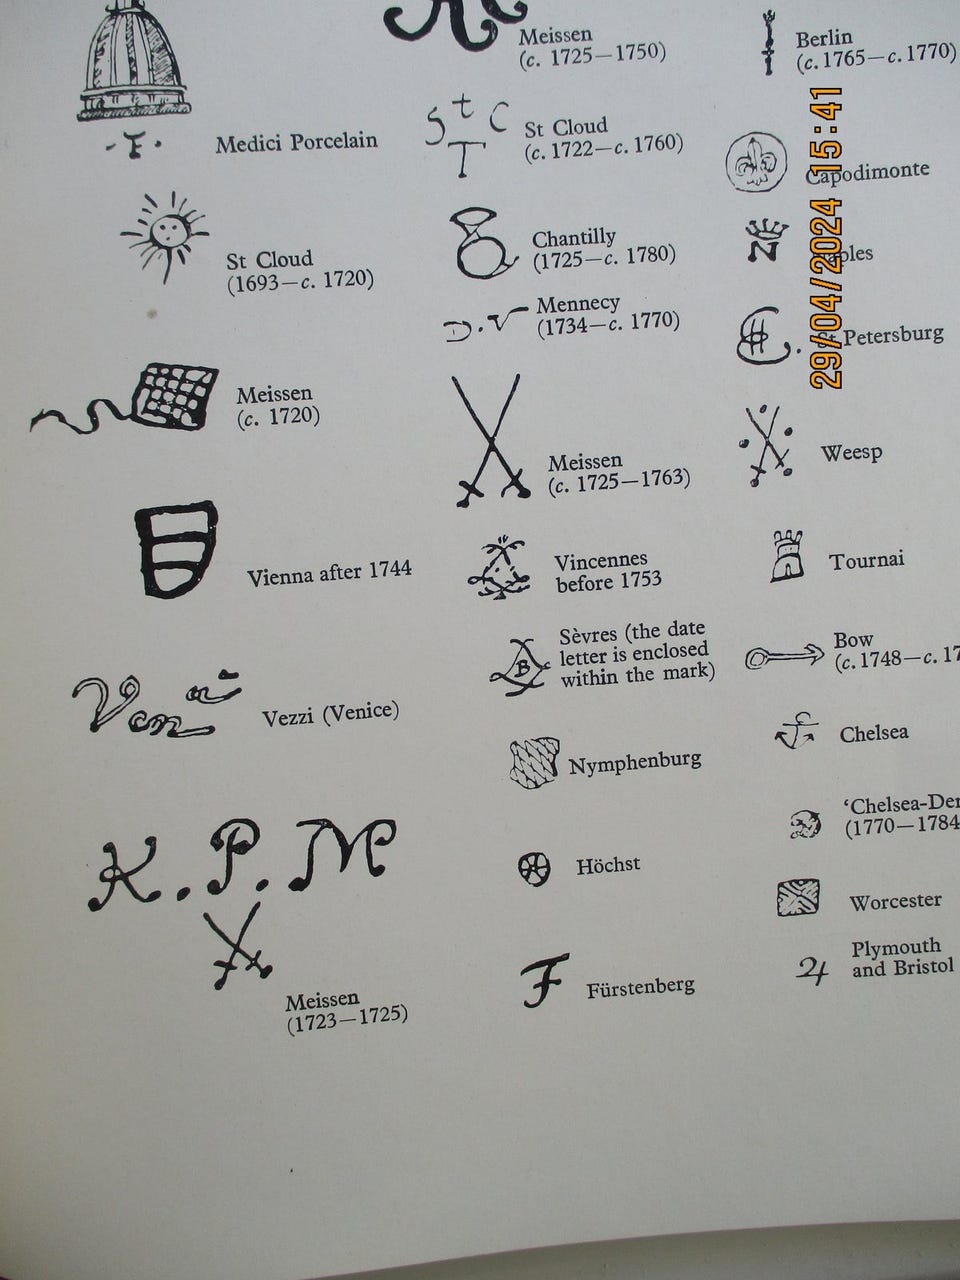 -F.
Medici Porcelain
St Cloud
(1693—c. 1720)
Meissen
(c. 1720)
Vienna after 1744
Venª
Vezzi (Venice)
K.P.M
Meissen
(1723—1725)
Meissen
(c. 1725—1750)
St C
T
St Cloud
(c. 1722—c. 1760)
Chantilly
(1725—c. 1780)
D.V
Mennecy
(1734—c. 1770)
Meissen
(c. 1725—1763)
Vincennes
before 1753
B
Sèvres (the date
letter is enclosed
within the mark)
Nymphenburg
Höchst
F
Fürstenberg
Berlin
(c. 1765—c. 1770)
Capodimonte
N
St Petersburg
Weesp
Tournai
Bow
(c. 1748—c. 17
Chelsea
‘Chelsea-Der
(1770—1784
Worcester
Plymouth
and Bristol
29/04/2024 15:41